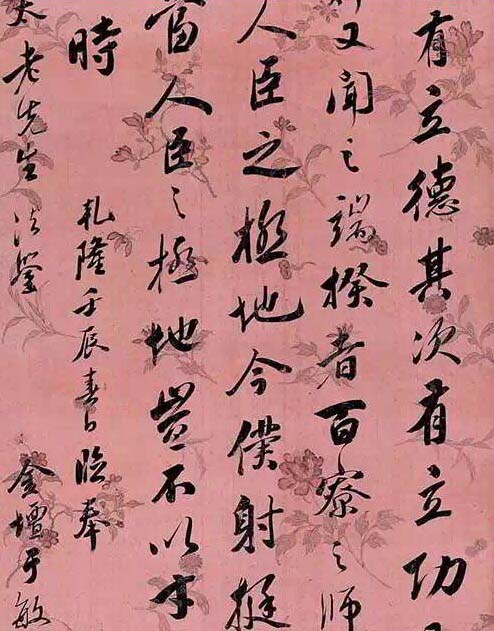 有立德其次有立功
又聞之端揆者百寮之師
人臣之極地今僕射挺
當人臣之極地豈不以才
時 乾隆壬辰春日臨奉
老先生法鑒 金壇于敏